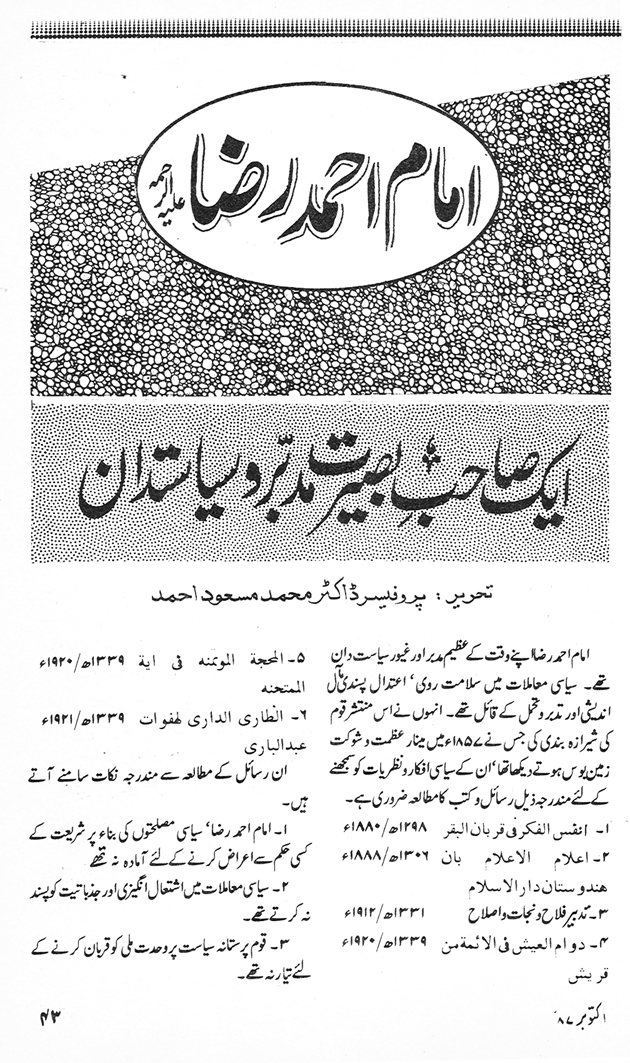 امام احمد رضا علیہ الرحمہ
ایک صاحبِ بصیرت مدبّر و سیاستدان
تحریر: پروفیسر ڈاکٹر محمد مسعود احمد
امام احمد رضا اپنے وقت کے عظیم مدبر اور غیور سیاست دان
تھے۔ سیاسی معاملات میں سلامت روی‘ اعتدال پسندی مآل
اندیشی اور تدبر و تحمل کے قائل تھے۔ انہوں نے اس منتشر قوم
کی شیرازہ بندی کی جس نے ۱۸۵۷ء میں مینار عظمت و شوکت
زمین بوس ہوتے دیکھا تھا‘ ان کے سیاسی افکار و نظریات کو سمجھنے
کے لئے مندرجہ ذیل رسائل و کتب کا مطالعہ ضروری ہے۔
۱۔ انفس الفکر فی قربان البقر ۱۲۹۸ھ/۱۸۸۰ء
۲۔ اعلام الاعلام بان ۱۳۰۶ھ/۱۸۸۸ء
ھندوستان دارالاسلام
۳۔ تدبیر فلاح و نجات و اصلاح ۱۳۳۱ھ/۱۹۱۲ء
۴۔ دوام العیش فی الائمۃ من ۱۳۳۹ھ/۱۹۲۰ء
قریش
۵۔ المحجة الموتمنه فی ایة ۱۳۳۹ھ/۱۹۲۰ء
الممتحنه
۶۔ الطاری الداری لھفوات ۱۳۳۹ھ/۱۹۲۱ء
عبدالباری
ان رسائل کے مطالعہ سے مندرجہ نکات سامنے آتے
ہیں۔
۱۔ امام احمد رضا‘ سیاسی مصلحتوں کی بناء پر شریعت کے
کسی حکم سے اعراض کرنے کے لئے آمادہ نہ تھے
۲۔ سیاسی معاملات میں اشتعال انگیزی اور جذباتیت کو پسند
نہ کرتے تھے۔
۳۔ قوم پرستانہ سیاست پر وحدت ملی کو قربان کرنے کے
لئے تیار نہ تھے۔
اکتوبر ۸۷ء
۴۳